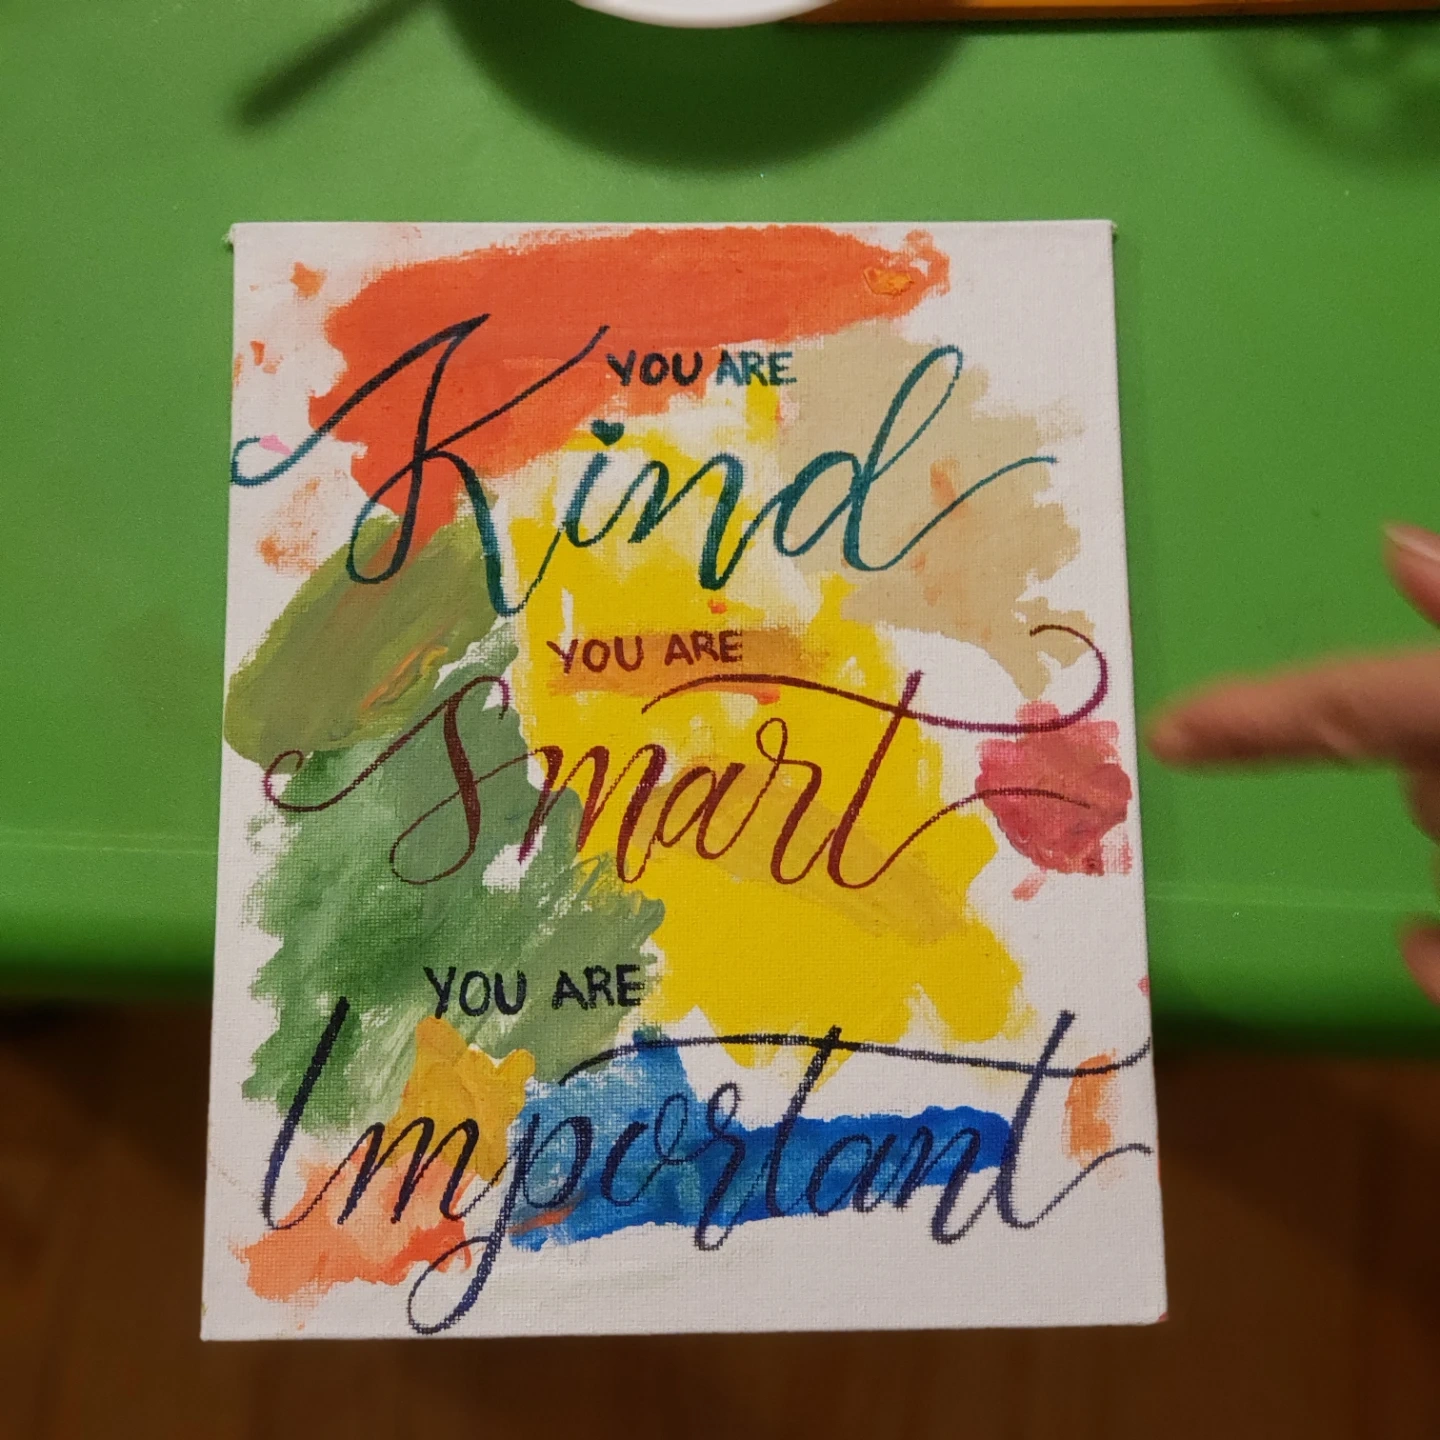 YOU ARE
Kind
YOU ARE
Smart
YOU ARE
Important